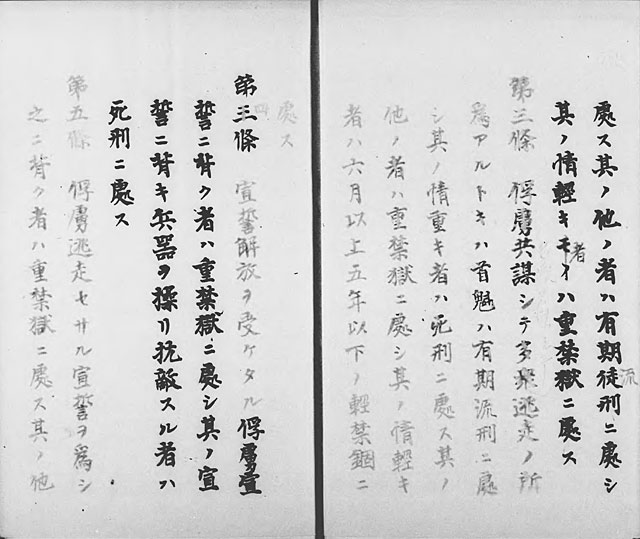 流
處ス其ノ他ノ者ハ有期徒刑ニ處シ
者
其ノ情輕キモノハ重禁獄ニ處ス
第三條　俘虜共謀シテ多衆逃走ノ所
爲アルトキハ首魁ハ有期流刑ニ處
シ其ノ情重キ者ハ死刑ニ處ス其ノ
他ノ者ハ重禁獄ニ處シ其ノ情輕キ
者ハ六月以上五年以下ノ輕禁錮ニ
處ス
四
第三條　宣誓解放ヲ受ケタル俘虜宣
誓ニ背ク者ハ重禁獄ニ處シ其ノ宣
誓ニ背キ兵器ヲ操リ抗敵スル者ハ
死刑ニ處ス
第五條　俘虜逃走セサル宣誓ヲ爲シ
之ニ背ク者ハ重禁獄ニ處ス其ノ他